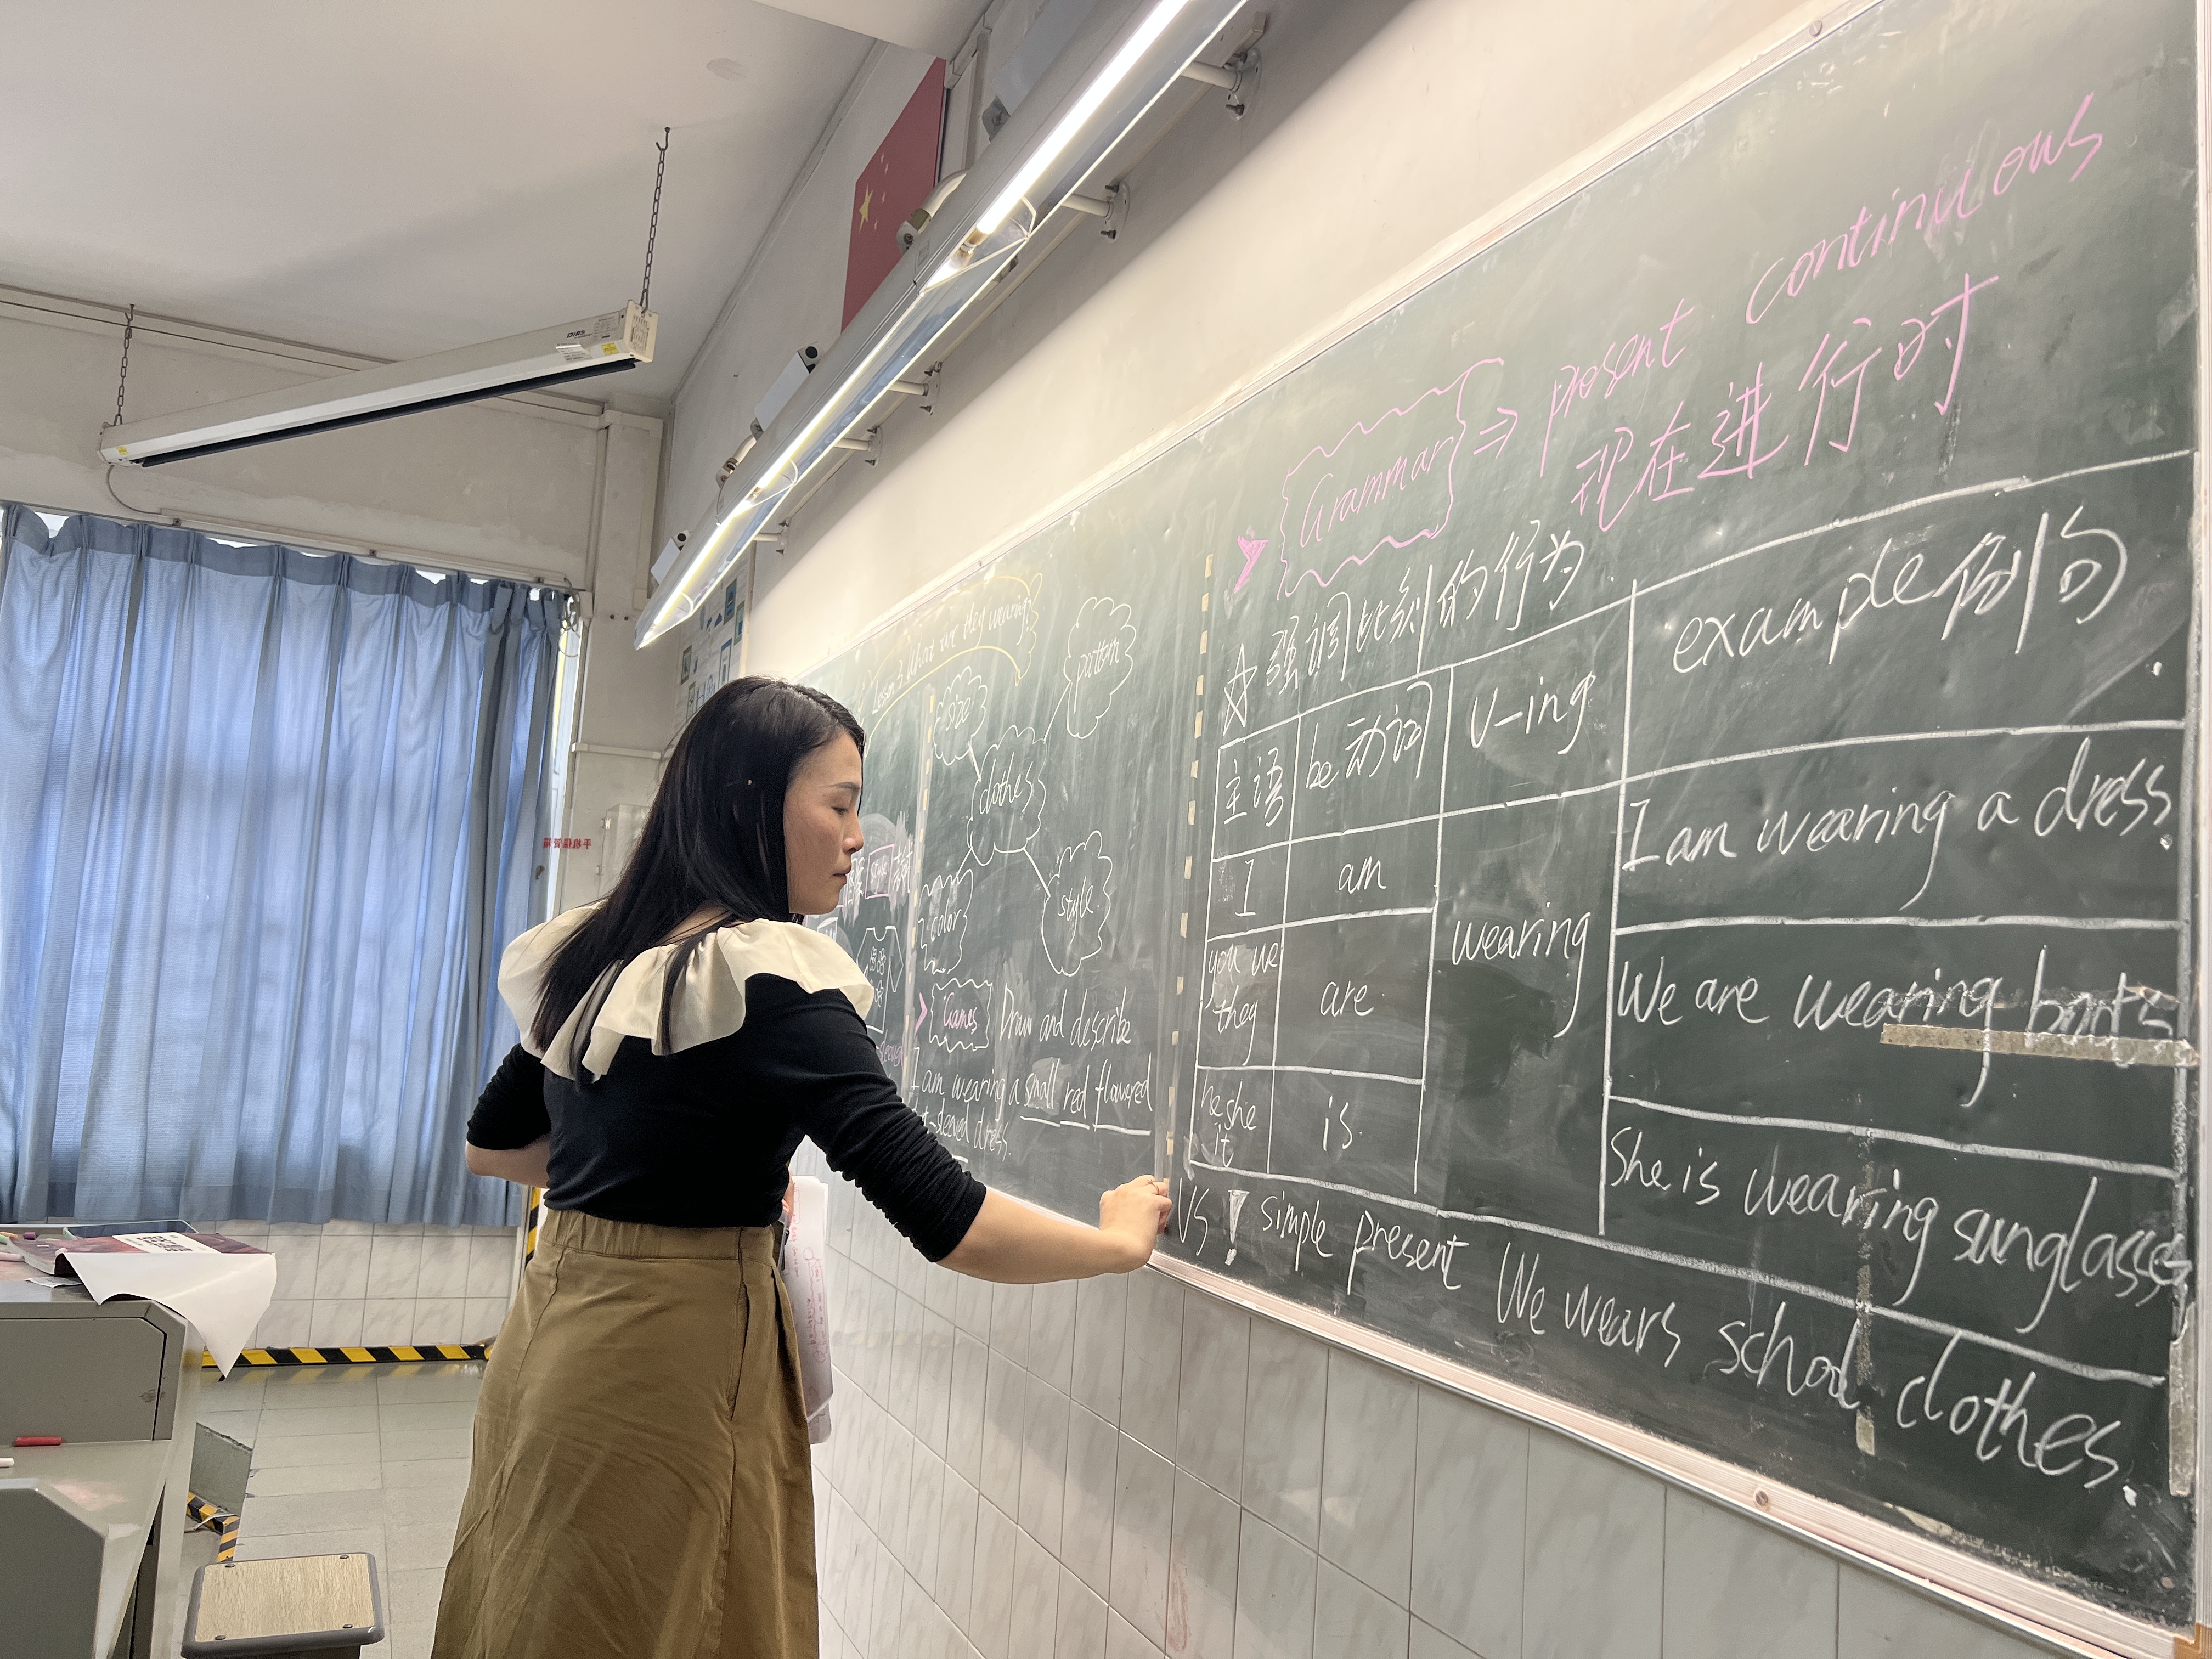 Lesson 3 What are they wearing?
size
pattern
clothes
color
style
Games Draw and describe
I am wearing a small red flowered
t-sleeved dress.
Grammar ⇒ present continuous
现在进行时
☆ 强调此刻的行为
主语 be动词 v-ing example 例句
I am wearing I am wearing a dress.
you we they are We are wearing boots
he she it is She is wearing sunglasses
VS ! simple present We wears school clothes.
手机保管箱
DIRS